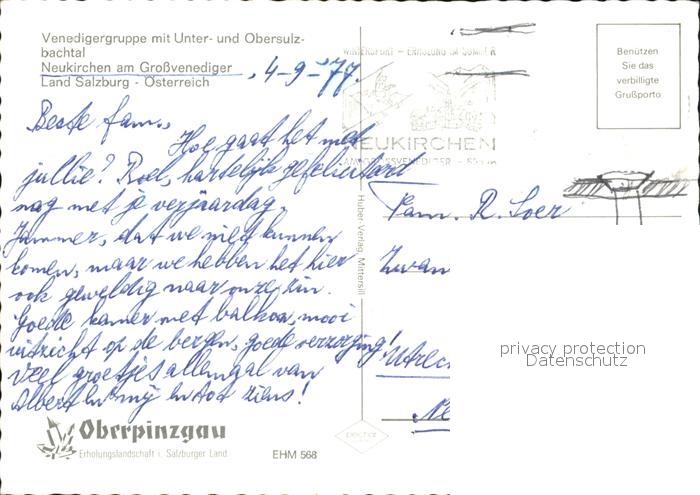 Venedigergruppe mit Unter- und Obersulz-
bachtal
Neukirchen am Großvenediger
Land Salzburg - Österreich
4-9-'77.
Beste fam.,
Hoe gaat het met
jullie? Roel, hartelijk gefeliciteerd
nog met je verjaardag.
Jammer, dat we niet kunnen
komen, maar we hebben het hier
ook geweldig naar onze zin.
Goede kamer met balkon, mooi
uitzicht op de bergen, goede verzorging!
Veel groetjes allemaal van
Albert en mij en tot ziens!
Oberpinzgau
Erholungslandschaft i. Salzburger Land
EHM 568
Huber-Verlag, Mittersill
WINTERSPORT - ERHOLUNG IM SOMMER
NEUKIRCHEN
AM GROSSVENEDIGER
Benützen
Sie das
verbilligte
Grußporto
Fam. R. Soer
Zwan
Utrec
Ne
privacy protection
Datenschutz